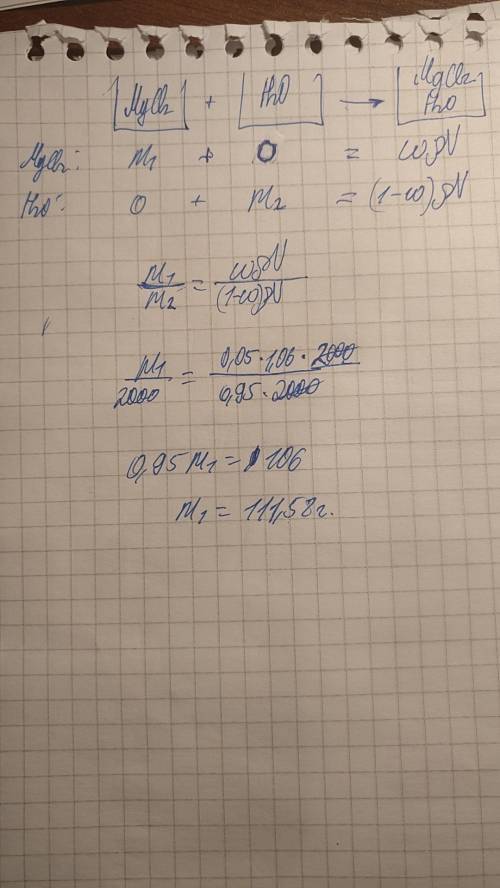 [MgCl₂] + [H₂O] → [MgCl₂ H₂O]
MgCl₂: m₁ + 0 = ωρV
H₂O: 0 + m₂ = (1-ω)ρV
m₁/m₂ = ωρV/(1-ω)ρV
m₁/2000 = 0,05·1,06·2000/0,95·2000
0,95 m₁ = 106
m₁ = 111,58г.